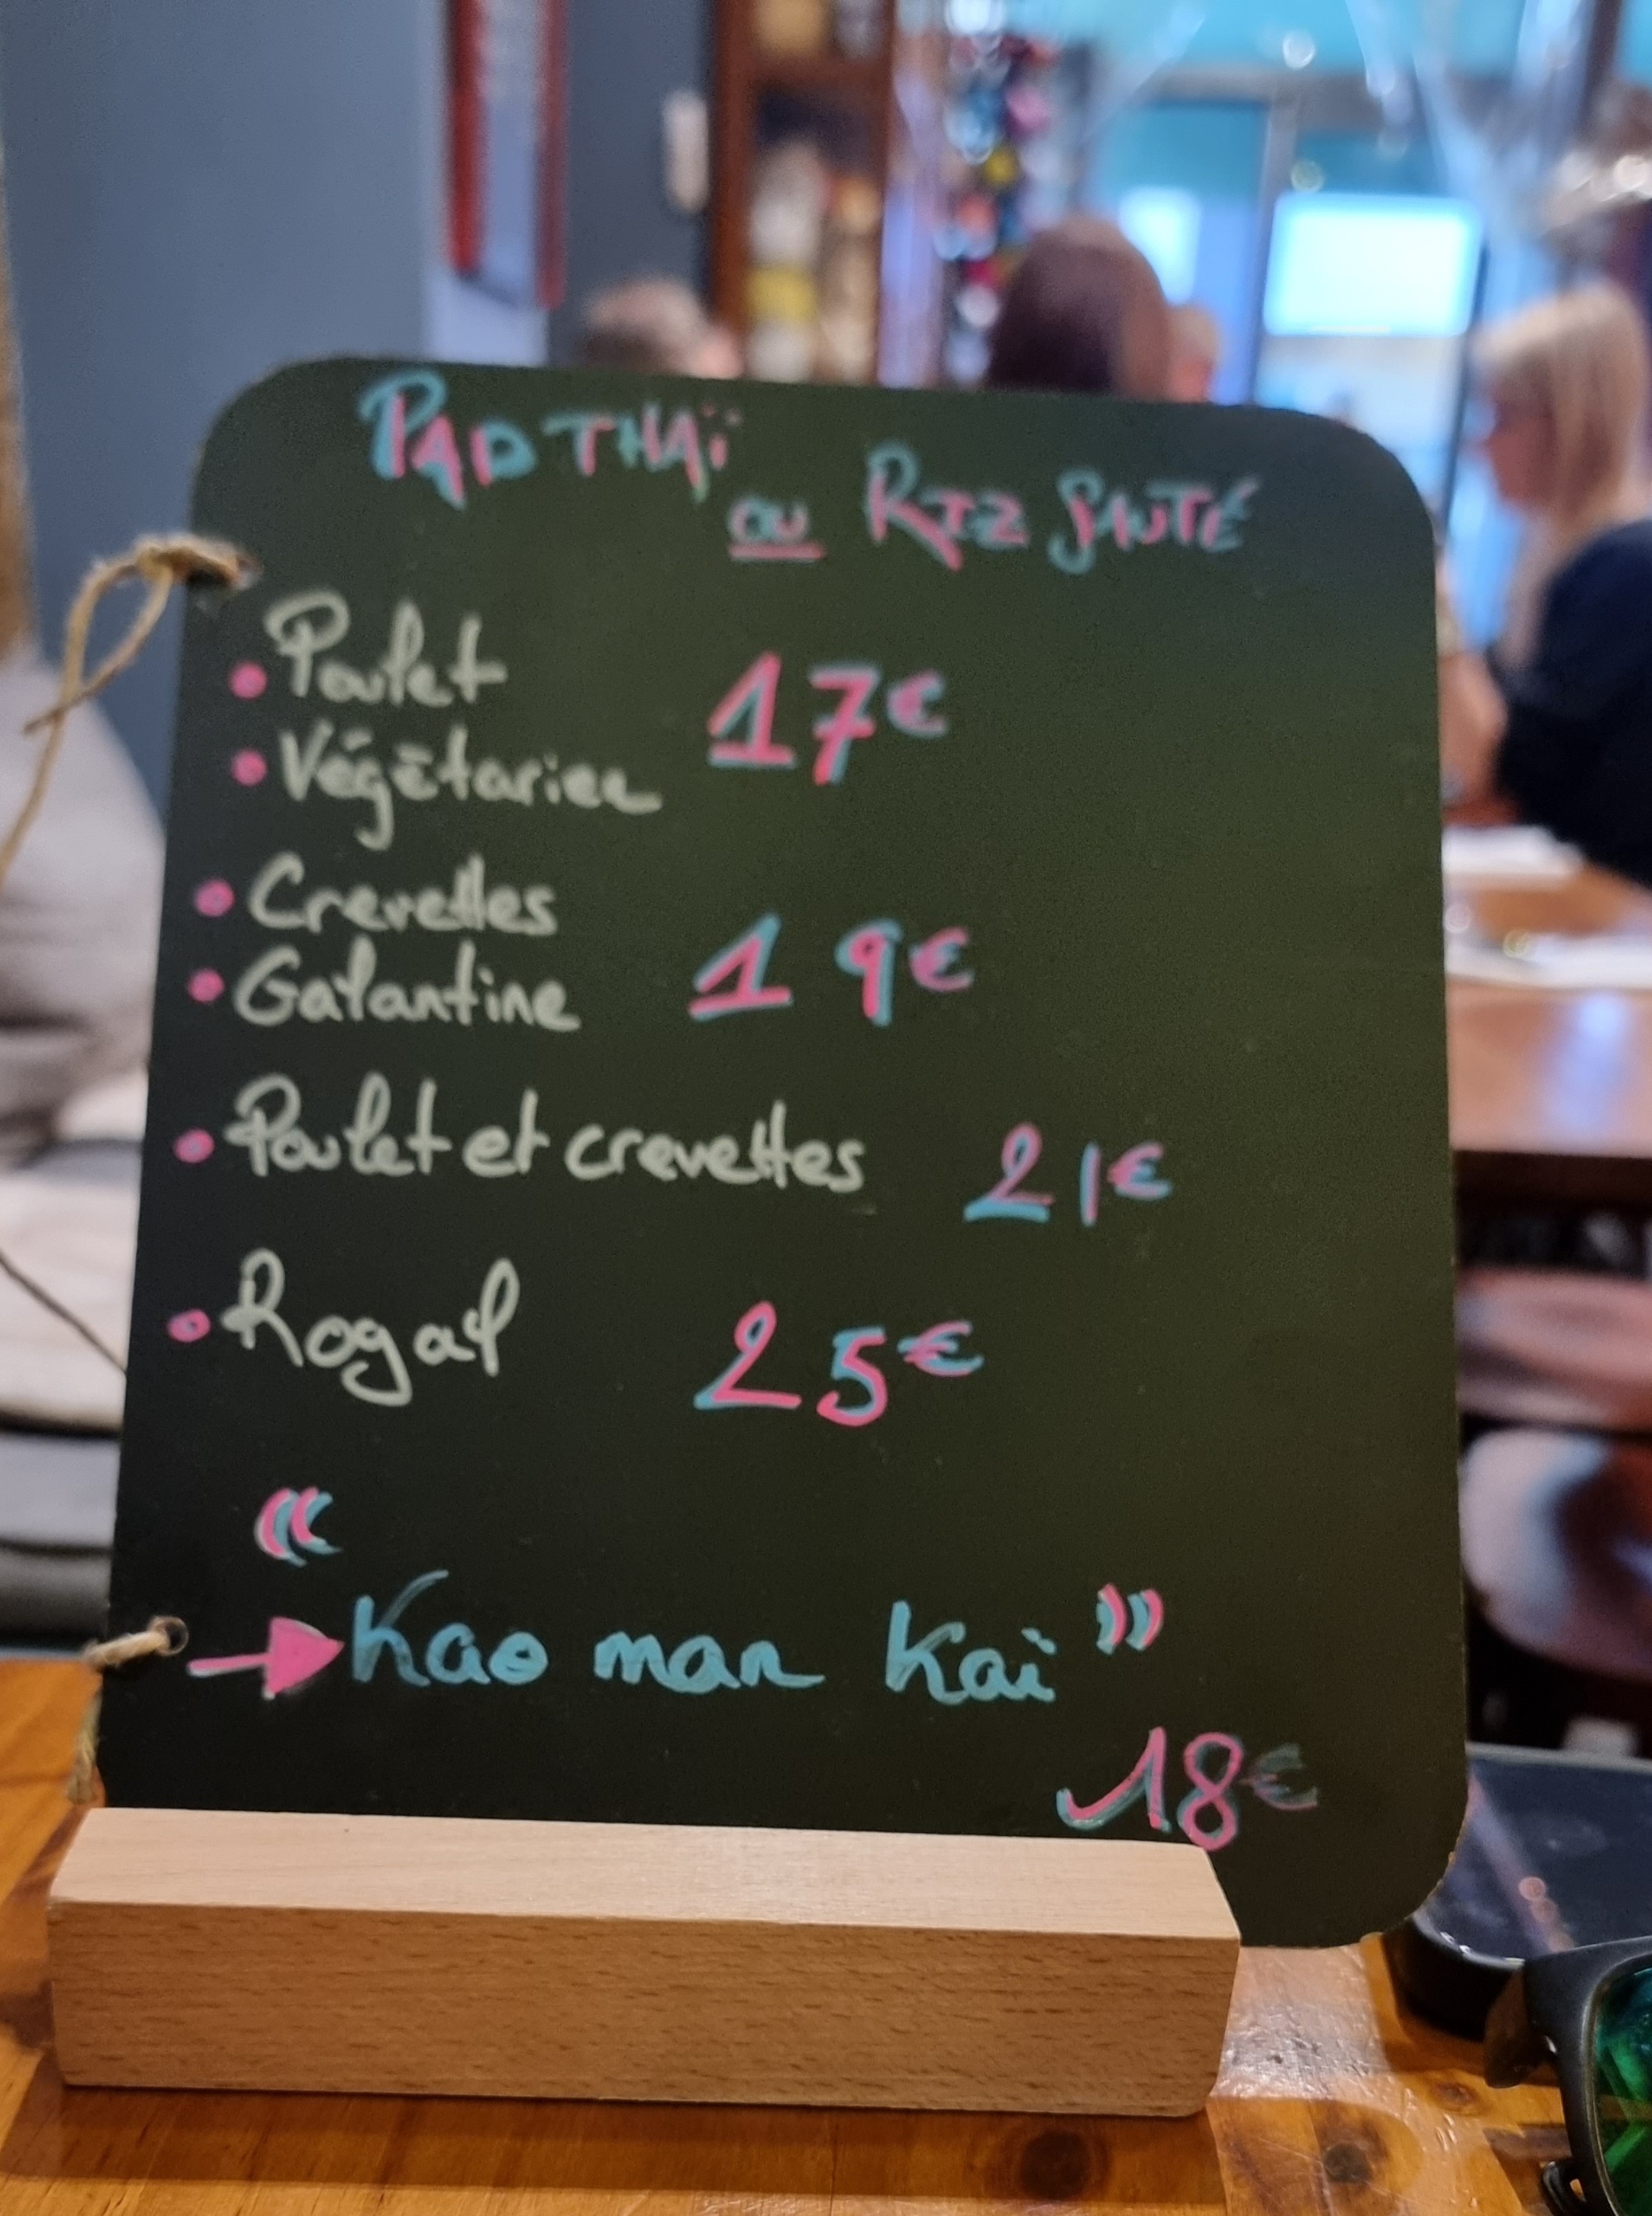 PAD THAÏ
ou RIZ SAUTÉ
• Poulet
17€
• Végétarien
• Crevettes
19€
• Galantine
• Poulet et crevettes 21€
• Royal 25€
«
→ Kao man Kaï »
18€